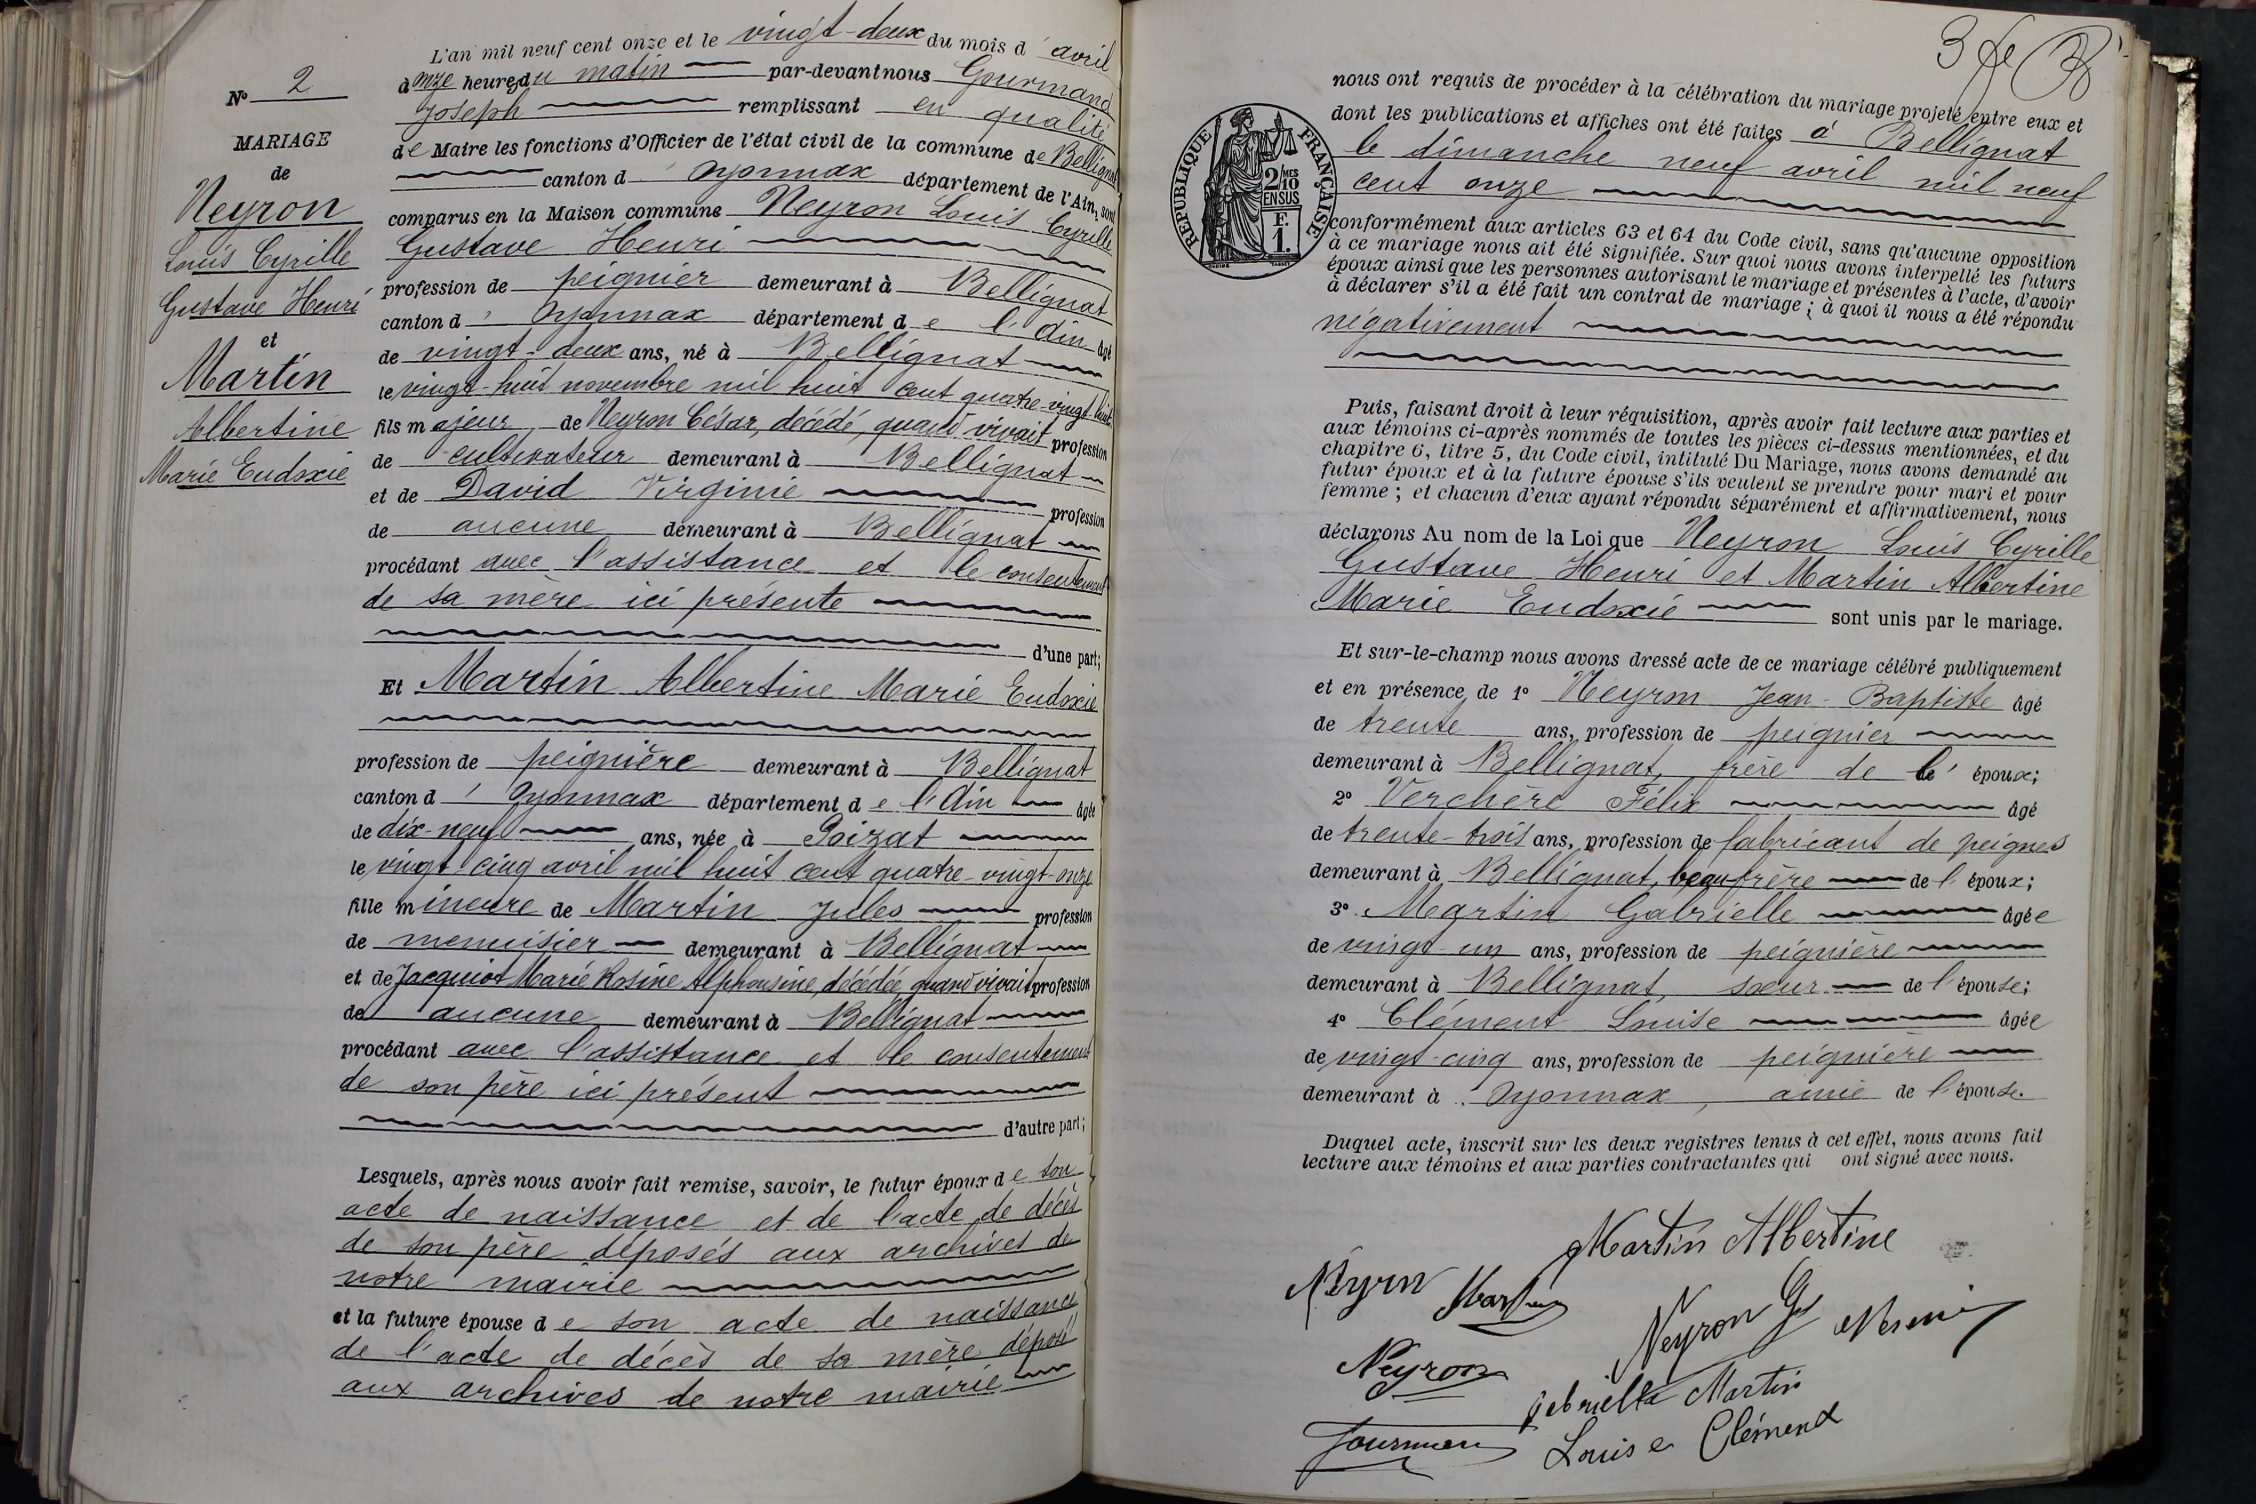 N° 2
MARIAGE
de
Neyron
Louis Cyrille
Gustave Henri
et
Martin
Albertine
Marie Eudoxie
L'an mil neuf cent onze et le vingt-deux du mois d'avril
à onze heures du matin par-devant nous Gourmand
Joseph remplissant en qualité
de Maire les fonctions d'Officier de l'état civil de la commune de Bellignat
canton d'Oyonnax département de l'Ain, sont
comparus en la Maison commune Neyron Louis Cyrille
Gustave Henri
profession de peignier demeurant à Bellignat
canton d'Oyonnax département de l'Ain âgé
de vingt-deux ans, né à Bellignat
le vingt-huit novembre mil huit cent quatre-vingt-huit
fils majeur de Neyron César, décédé, quand vivait profession
de cultivateur demeurant à Bellignat
et de David Virginie profession
de aucune demeurant à Bellignat
procédant avec l'assistance et le consentement
de sa mère ici présente
d'une part;
Et Martin Albertine Marie Eudoxie
profession de peignière demeurant à Bellignat
canton d'Oyonnax département de l'Ain âgée
de dix-neuf ans, née à Poizat
le vingt-cinq avril mil huit cent quatre-vingt-onze
fille mineure de Martin Jules profession
de menuisier demeurant à Bellignat
et de Jacquiot Marie Rosine Alphonsine, décédée, quand vivait profession
de aucune demeurant à Bellignat
procédant avec l'assistance et le consentement
de son père ici présent
d'autre part;
Lesquels, après nous avoir fait remise, savoir, le futur époux de son
acte de naissance et de l'acte de décès
de son père déposés aux archives de
notre mairie
et la future épouse de son acte de naissance
de l'acte de décès de sa mère déposé
aux archives de notre mairie
3
nous ont requis de procéder à la célébration du mariage projeté entre eux et
dont les publications et affiches ont été faites à Bellignat
le dimanche neuf avril mil neuf
cent onze
RÉPUBLIQUE FRANÇAISE
2/10 MES
EN SUS
F.
1.
conformément aux articles 63 et 64 du Code civil, sans qu'aucune opposition
à ce mariage nous ait été signifiée. Sur quoi nous avons interpellé les futurs
époux ainsi que les personnes autorisant le mariage et présentes à l'acte, d'avoir
à déclarer s'il a été fait un contrat de mariage; à quoi il nous a été répondu
négativement
Puis, faisant droit à leur réquisition, après avoir fait lecture aux parties et
aux témoins ci-après nommés de toutes les pièces ci-dessus mentionnées, et du
chapitre 6, titre 5, du Code civil, intitulé Du Mariage, nous avons demandé au
futur époux et à la future épouse s'ils veulent se prendre pour mari et pour
femme; et chacun d'eux ayant répondu séparément et affirmativement, nous
déclarons Au nom de la Loi que Neyron Louis Cyrille
Gustave Henri et Martin Albertine
Marie Eudoxie sont unis par le mariage.
Et sur-le-champ nous avons dressé acte de ce mariage célébré publiquement
et en présence de 1° Neyron Jean-Baptiste âgé
de trente ans, profession de peignier
demeurant à Bellignat, frère de l'époux;
2° Verchère Félix âgé
de trente-trois ans, profession de fabricant de peignes
demeurant à Bellignat, beau frère de l'époux;
3° Martin Gabrielle âgée
de vingt-un ans, profession de peignière
demeurant à Bellignat, sœur de l'épouse;
4° Clément Louise âgée
de vingt-cinq ans, profession de peignière
demeurant à Oyonnax, amie de l'épouse.
Duquel acte, inscrit sur les deux registres tenus à cet effet, nous avons fait
lecture aux témoins et aux parties contractantes qui ont signé avec nous.
Martin Albertine
Neyron Martin
Neyron
Neyron
Gabrielle Martin
Gourmand Louise Clément